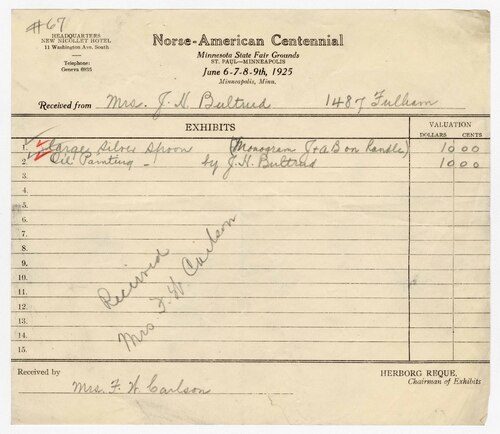 #67
HEADQUARTERS
NEW NICOLLET HOTEL
11 Washington Ave. South
Telephone:
Geneva 6835
Norse-American Centennial
Minnesota State Fair Grounds
ST. PAUL—MINNEAPOLIS
June 6-7-8-9th, 1925
Minneapolis, Minn.
Received from Mrs. J. H. Bultrud 1487 Fulham
EXHIBITS
VALUATION
DOLLARS CENTS
1. Large Silver Spoon (Monogram J + a B on Handle) 10 00
2. Oil Painting - by J. H. Bultrud 10 00
3.
4.
5.
6.
7.
8.
9.
10.
11.
12.
13.
14.
15.
Received
Mrs F. W Carlson
Received by
Mrs. F. W Carlson
HERBORG REQUE,
Chairman of Exhibits